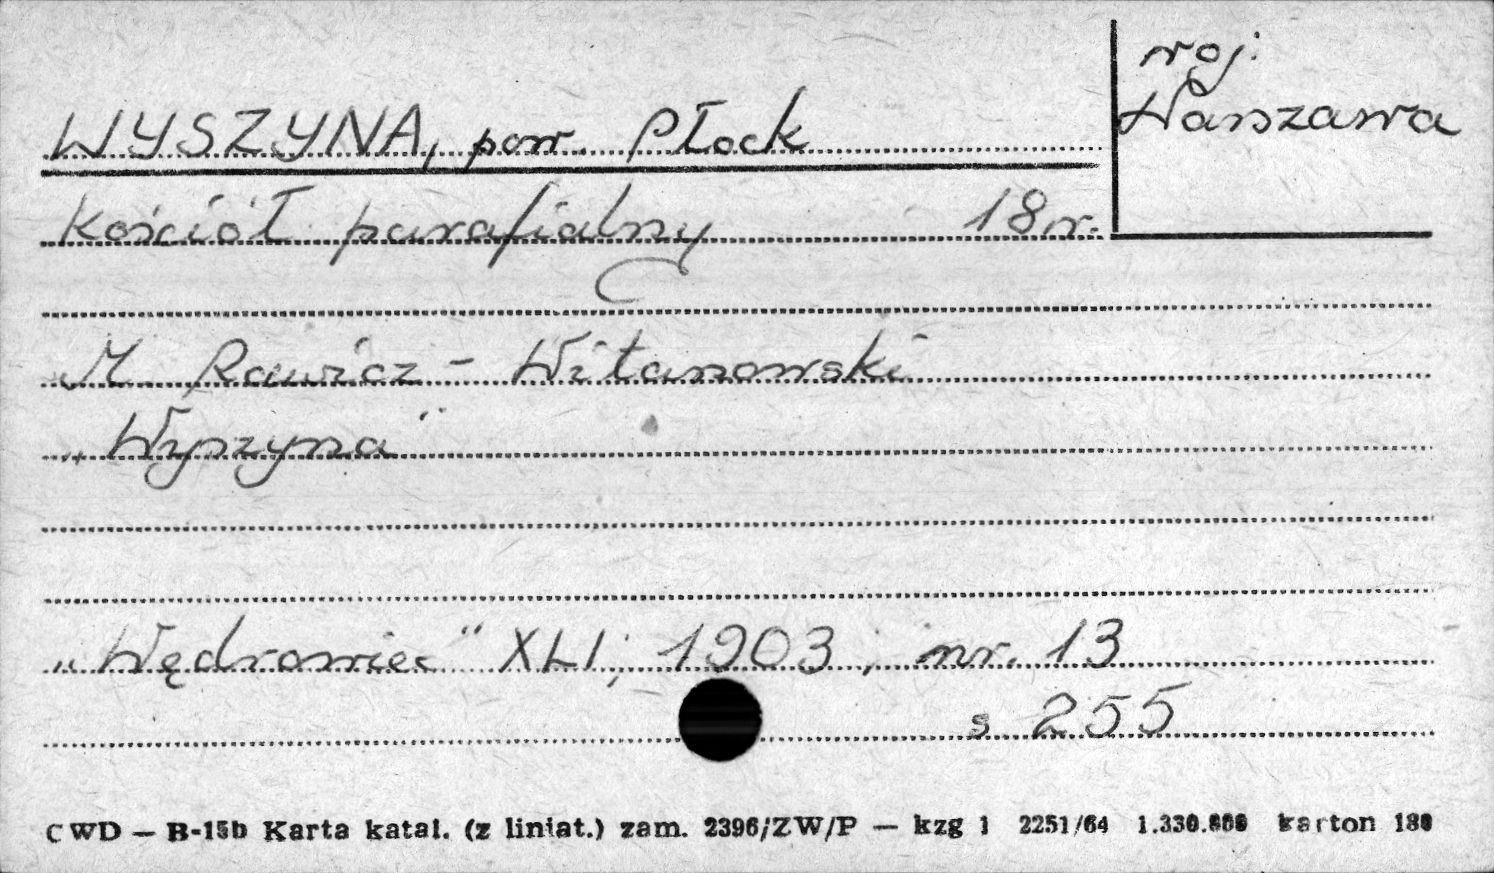 woj.
Warszawa
WYSZYNA, pow. Płock
Kościół parafialny 18 w.
M Rawicz - Witanowski
„Wyszyna"
„Wędrowiec" XLI, 1903, nr. 13
s 255
CWD — B-15b Karta katal. (z liniat.) zam. 2396/ZW/P — kzg 1 2251/64 1.330.000 karton 180